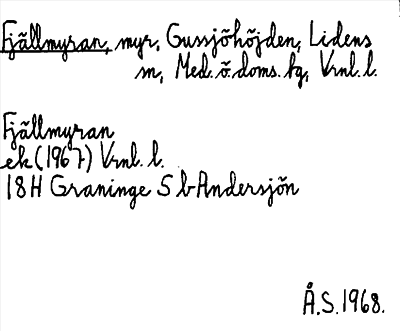 Fjällmyran, myr, Gussjöhöjden, Lidens
sn, Med. ö. doms. hg, Vrnl. l.
Fjällmyran
ek (1967) Vrnl. l.
18H Graninge S b Andersjön
Å.S. 1968.